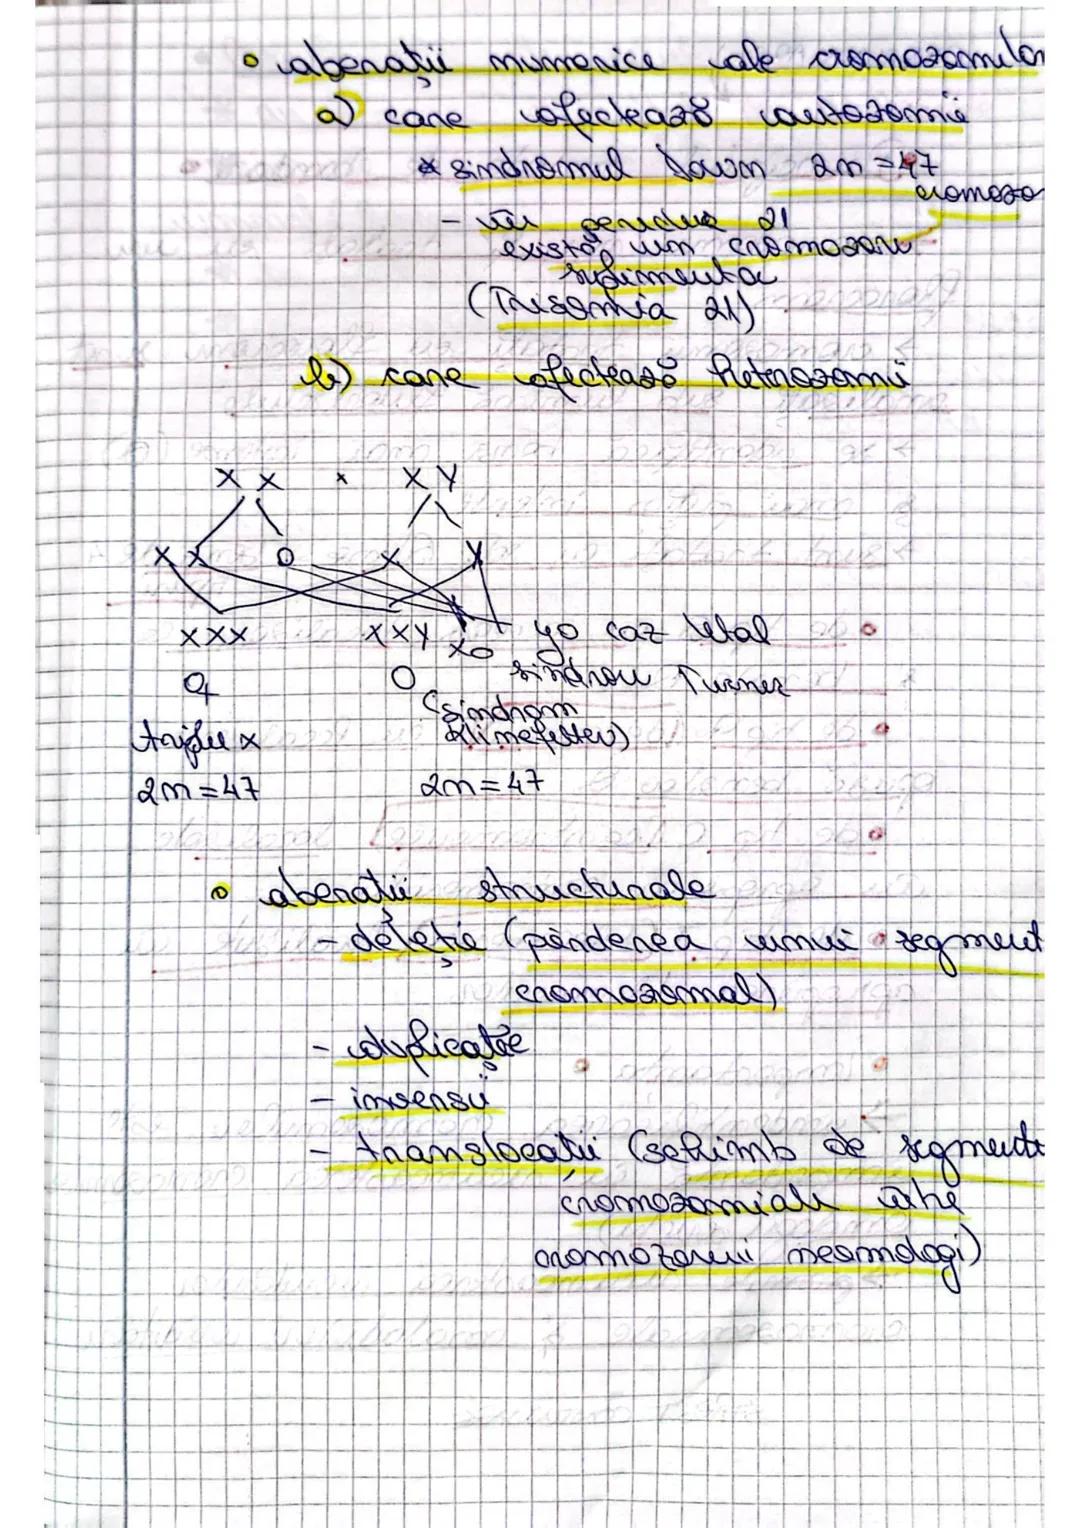 • aberații numerice ale cromozomilor
a) care afectează autozomii
* sindromul Down 2n = 47
cromozo
- la perechea 21
există un cromozom
suplimentar
(Trisomia 21)
b) care afectează heterozomii
X X x X Y
X X O X Y
XXX XXY XO yo caz letal
♀ O sindrom Turner
(sindrom
Klinefelter)
triplu x
2n = 47 2n = 47
• aberații structurale
- deleție (pierderea unui segment
cromozomal)
- duplicație
- inversii
- translocații (schimb de segmente
cromozomiale între
cromozomi neomologi)